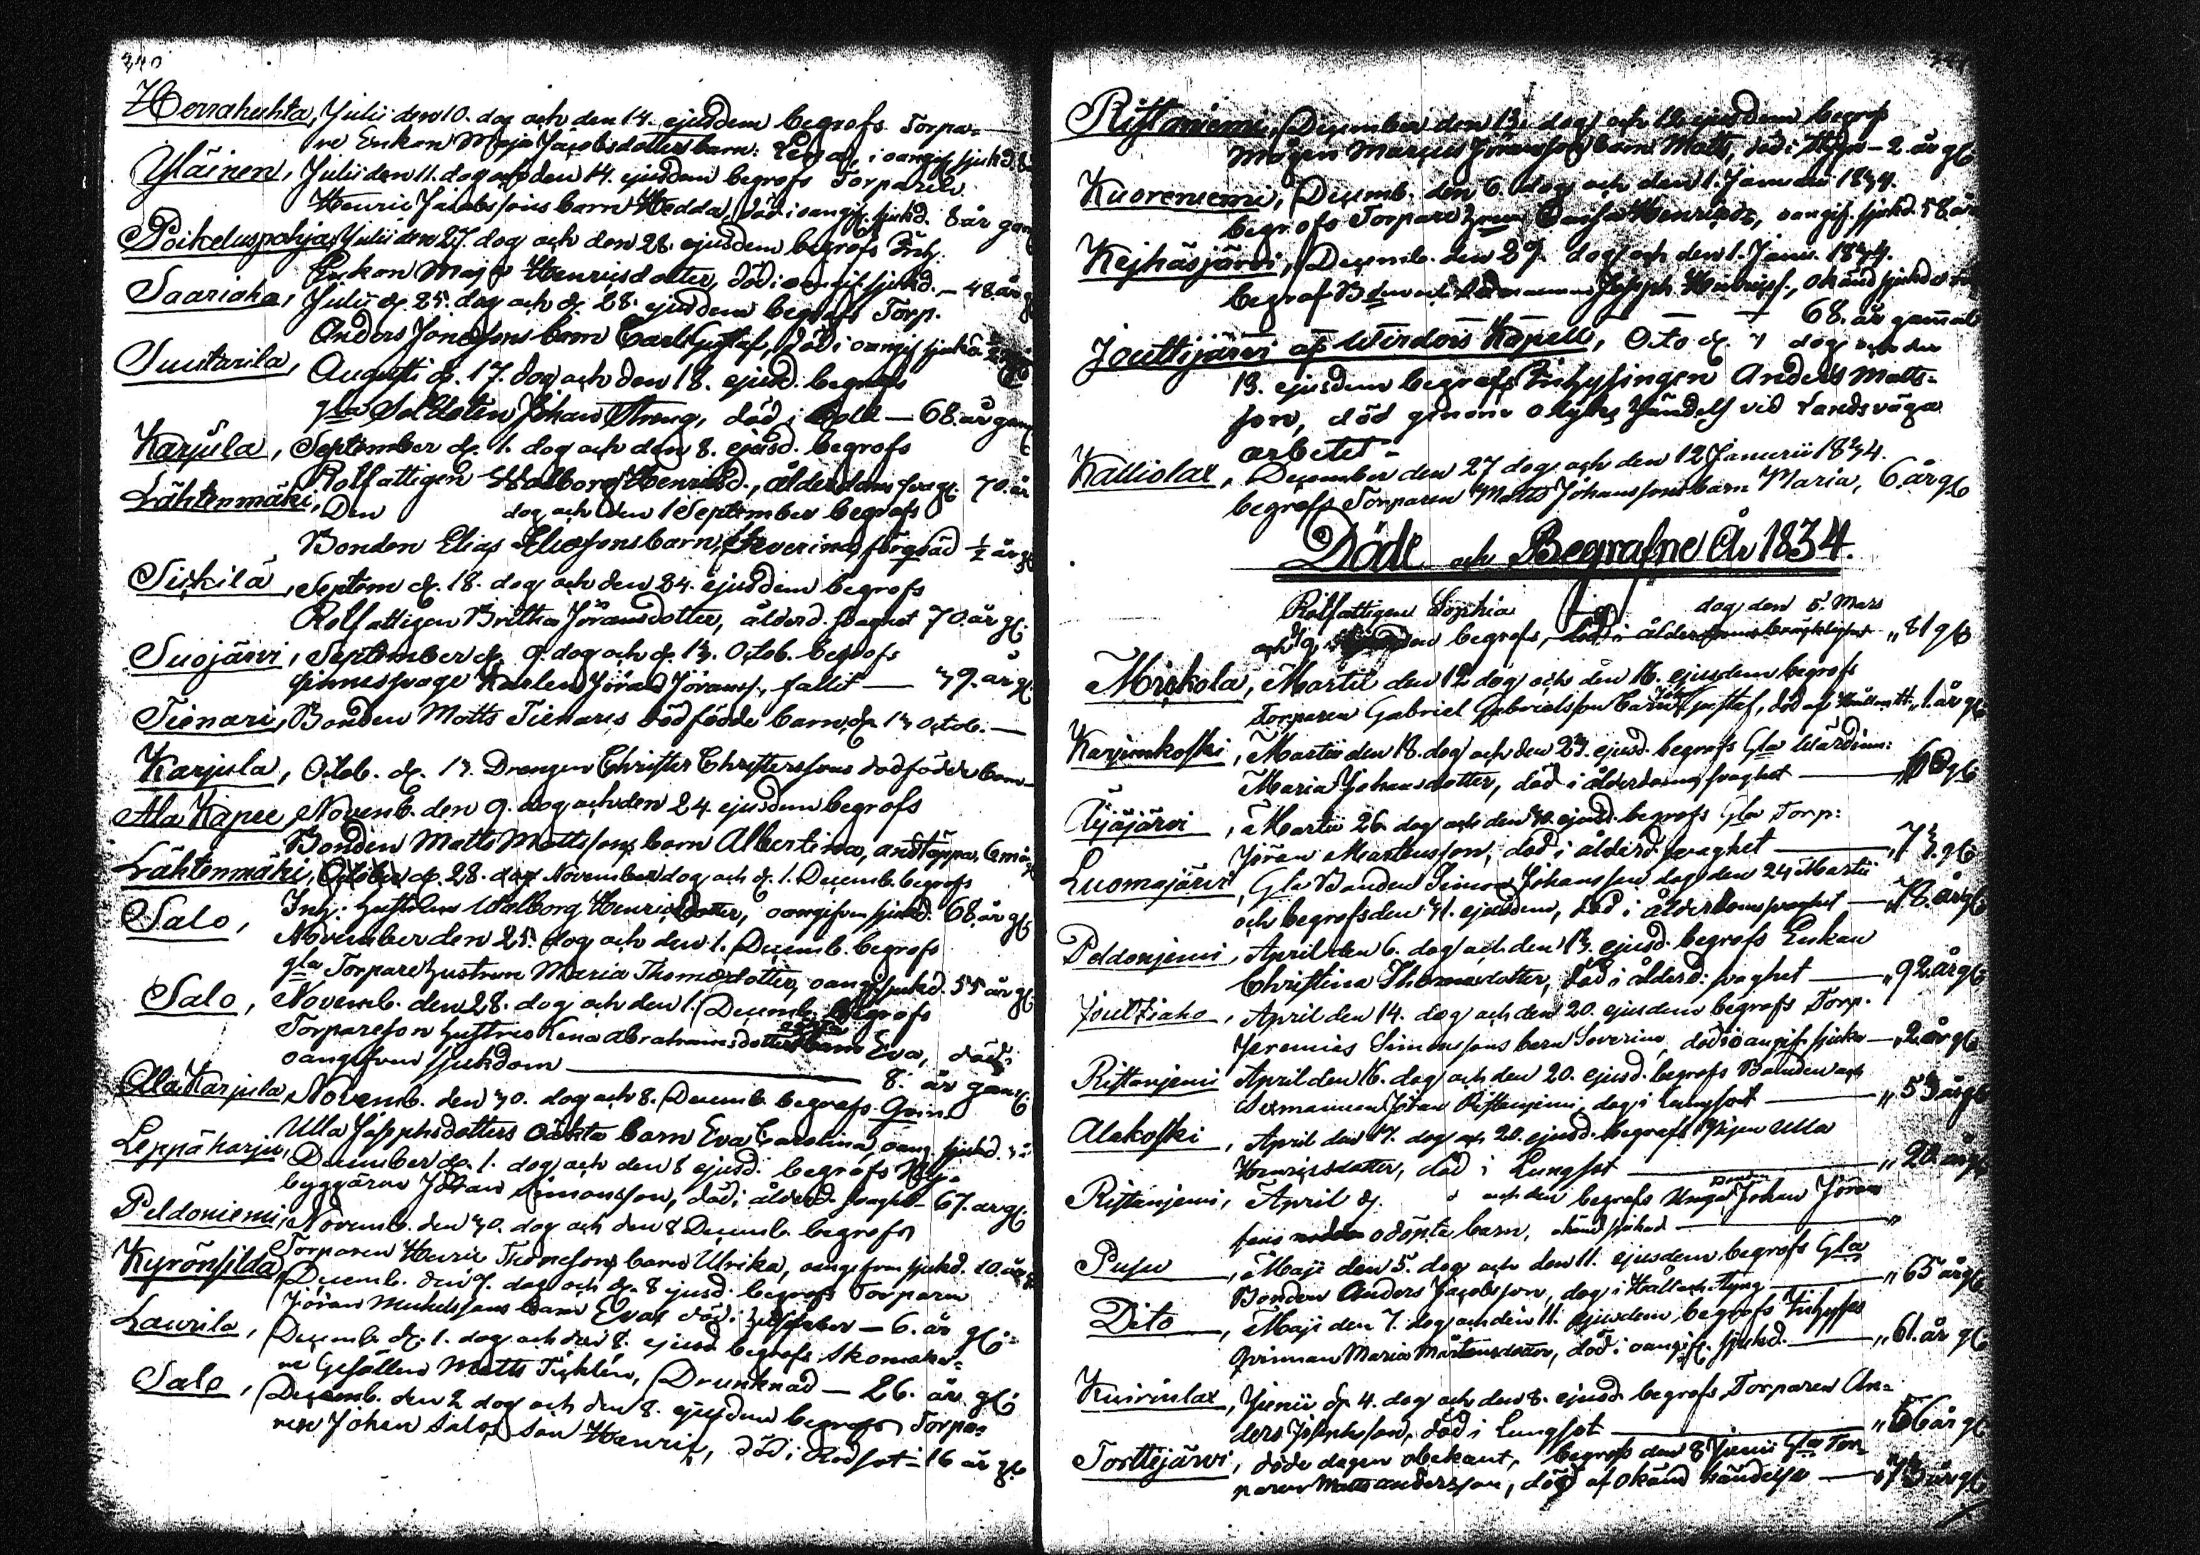 340
Herrahuhta, Julii den 10. dag och den 14. ejusdem begrofs Torpa=
re Enkan Maja Jacobsdotters barn: i oangif. sjukd.
Yläinen, Julii den 11. dag och den 14. ejusdem begrofs Torparen
Henric Jacobssons barn Hedda, död i oangif. sjukd. 8 år gam
Poikeluspohja, Julii den 27. dag och den 28. ejusdem begrofs Inh.
Enkan Maja Henricsdotter, död i oangif. sjukd. — 48 år
Saariaho, Julii d. 25. dag och d. 28. ejusdem begrofs Torp.
Anders Jonassons barn Carl Gustaf, död i oangif sjukd.
Suutarila, Augusti d. 17. dag och den 18. ejusd. begrofs
gla Soldaten Johan Streng, död i — 68. år gam
Karjula, September d. 1. dag och den 8. ejusd. begrofs
Rotfattigen Walborg Henricsd., ålderdoms svagh. 70. år
Lähtenmäki, Den dag och den 1 September begrofs
Bonden Elias Eliassons barn, Severina, förqväd ½ år
Sirkilä, Septem d. 18. dag och den 24. ejusdem begrofs
Rotfattigen Britha Jöransdotter, ålderd. svaghet 70. år gl.
Suojärvi, September d. 9. dag och d. 13. Octob. begrofs
sinnessvage Karlen Jöran Jöranss., fallit — 39. år gl
Tienari, Bonden Matts Tienaris dödfödde barn, d. 13 Octob. —
Karjula, Octob. d. 13. Drengen Christer Christerssons dödfödde barn —
Ala Käpee, Novemb. den 9. dag och den 24. ejusdem begrofs
Bonden Matts Mattssons barn Albertina, andtäppa, 6 mån
Lähtenmäki, October d. 28. dag November dag och d. 1. Decemb. begrofs
Inh: hustrun Walborg Henricsdotter, oangifven sjukd. 68. år gl.
Salo, November den 25. dag och den 1. Decemb. begrofs
gla Torpare hustrun Maria Thomasdotter, oangif sjukd. 55 år gl.
Salo, Novemb. den 28. dag och den 1. Decemb. begrofs
Torpareson hustrus Lena Abrahamsdotters barn Eva, död i
oangifven sjukdom — 8. år gam
Ala Karjula, Novemb. den 30. dag och 8. Decemb. begrofs Qvin
Ulla Josephsdotters oäkta barn Eva Carolina, oang. sjukd.
Leppäharju, December d. 1. dag och den 8 ejusd. begrofs Ny=
byggaren Johan Simonsson, död i ålderd. svaghet — 67. år gl.
Peldoniemi, Novemb. den 30. dag och den 8 Decemb. begrofs
Torparen Henric Thomassons barn Ulrika, oangifven sjukd. 10. år
Kyrönsilda, Decemb. den 7. dag och d. 8 ejusd. begrofs Torparen
Jöran Michelssons barn Eva död i — 6. år gl.
Laurila, Decemb. d. 1. dag och den 8. ejusd begrofs Skomaka=
re Gesällen Matts Drunknad — 26. år gl.
Salo, Decemb. den 2 dag och den 8. ejusdem begrofs Torpa=
ren Johan Salos son Henric, död i Rödsot — 16 år gl.
Ristaniemi, December den 13. dag och 16 ejusdem begrofs
Mågen Marcus Jöranssons barn Matts, död i — 2. år gl
Kuoreniemi, Decemb. den 6. dag och den 1. Januarii 1834.
begrofs Torpare hustrun Henricsdr, oangif. sjukd. 58 år
Kejhäsjärvi, Decemb. den 29. dag och den 1. Janu. 1834.
begrofs Joseph Henricss., okänd sjukd
— — — — 68. år gamal
Jouttijärvi af Wirdois Kapell, Octo d. dag och den
13. ejusdem begrofs Inhyssingen Anders Matts=
son, död genom olyks händelse vid Landsväga
arbetet —
Kalliolax, December den 27 dag och den 12 Januarii 1834.
begrofs Torparen Matts Johanssons barn Maria, 6. år gl
Döde och Begrafne År 1834.
Rotfattigen Sophia dag den 5. Mars
och 9. begrofs, död i ålderdoms „ 81 gl
Mickola, Martii den 12 dag och den 16. ejusdem begrofs
Torparen Gabriel Gabrielsson barn Johan Gustaf, död af „ 1. år gl
Karjunkoski, Martii den 18. dag och den 23. ejusd. begrofs Gla Wärdinn:
Maria Johansdotter, död i ålderdoms svaghet — „ 60 gl
Äijäjärvi, Martii 26. dag och den 30. ejusd. begrofs Gla Torp:
Jöran Mårtensson, död i ålderd. svaghet — „ 73. gl
Luomajärvi, Gla Bonden Simon Johansson dag den 24 Martii
och begrofs den 31. ejusdem, död i ålderdoms svaghet — „ 72. år gl
Peldonjemi, April den 6. dag och den 13. ejusd. begrofs Enkan
Christina Thomasdotter, död i ålderd: svaghet — „ 92. år gl
Jouttiaho, April den 14. dag och den 20. ejusdem begrofs Torp.
Jeremias Simonssons barn Severina, död i oangif. sjukd — „ 2. år gl
Ristanjemi April den 16. dag och den 20. ejusd. begrofs Bonden och
Sexmannen Johan Ristanjemi, dog i Lungsot — „ 53 år gl
Alakoski, April den 17. dag och 20. ejusd. begrofs Pigan Ulla
Henricsdotter, död i Lungsot — „ 20. år gl
Ristanjemi, April d. och den begrofs Unga Bonden Johan Jörans
sons odöpta barn, okänd sjukd — „
Pusu, Maji den 5. dag och den 11. ejusdem begrofs Gla
Bonden Anders Jacobsson, dog i Håll och Styng — „ 65 år gl
Dito, Maji den 7. dag och den 11. ejusdem, begrofs Inhyses
Qvinnan Maria Mårtensdotter, död i oangif. sjukd. — „ 61. år gl
Kuirinlax, Junii d. 4. dag och den 8. ejusd. begrofs Torparen An=
ders Josephsson, död i Lungsot — „ 56 år gl
Torttijärvi, döde dagen obekant, begrofs den 8 Junii Gla Tor=
paren Matts Andersson, död af okänd händelse — „ 73 år gl